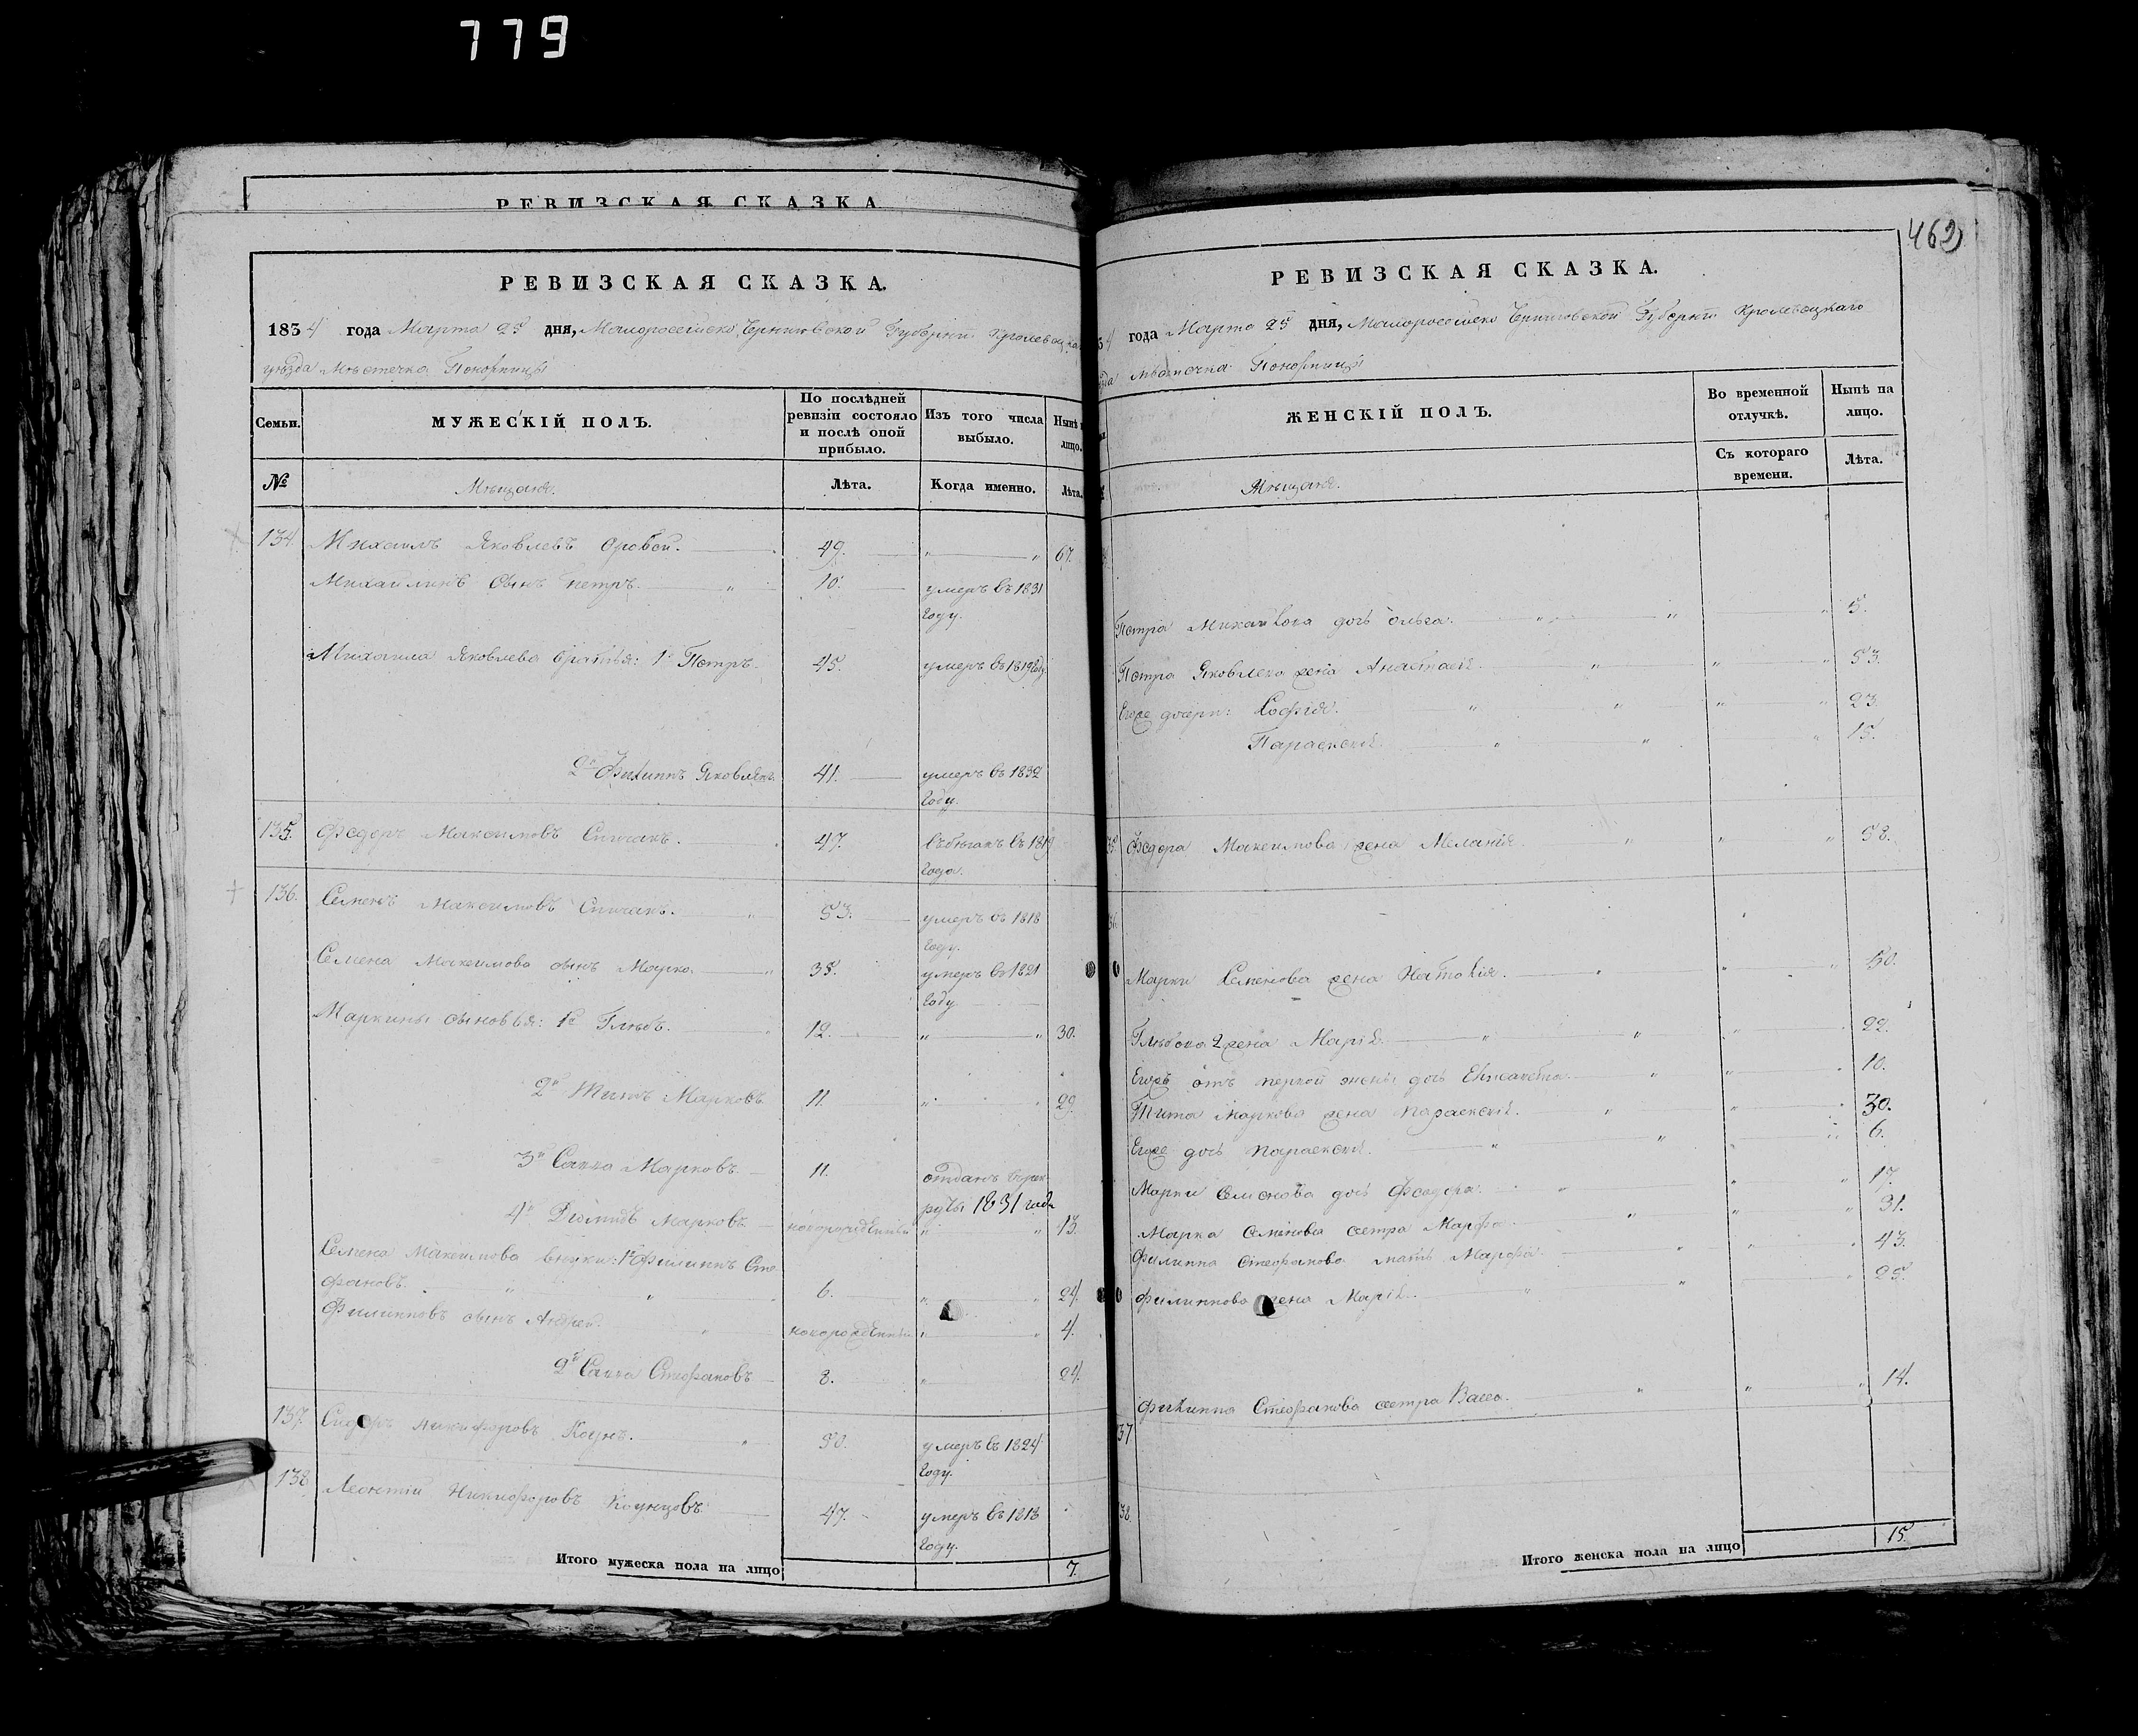 779
РЕВИЗСКАЯ СКАЗКА
РЕВИЗСКАЯ СКАЗКА.
1834 года Марта 25 дня, Малоросейско Черниговской Губерніи Кролевецка
уѣзда Мѣстечка Понорницы
Семьи. МУЖЕСКІЙ ПОЛЪ. По послѣдней ревизіи состояло и послѣ оной прибыло. Изъ того числа выбыло. Нынѣ лицо.
№ Мѣщане. Лѣта. Когда именно. Лѣта.
134 Михаилъ Яковлевъ 49. " " 67.
Михаиловъ сынъ Петръ. " 10. умеръ въ 1831
году.
Михаила Яковлева братья: 1й Петръ. 45. умеръ въ 1819 году
2й Филиппъ Яковлевъ 41. умеръ въ 1832
году.
135. Федоръ Максимовъ Спичакъ. 47. въ бѣгахъ въ 1819
года.
136. Семенъ Максимовъ Спичакъ. " 53. умеръ въ 1818
году.
Семена Максимова сынъ Марко. " 35. умеръ въ 1821
году.
Маркины сыновья: 1й Глѣбъ. 12. " " 30.
2й Титъ Марковъ 11. " 29.
3й Савва Марковъ 11. отданъ въ рек
руты 1831 года
4й Діомидъ Марковъ новорожденный " " 13.
Семена Максимова внуки: 1й Филиппъ Сте
фановъ. " " 6. " " 24.
Филипповъ сынъ Андрей. " новорожденный " " 4.
2й Савва Стефановъ 8. " 24.
137. Сидоръ Никифоровъ " 50. умеръ въ 1824
году.
138 Леонтій Никифоровъ 47. умеръ въ 1818
году.
Итого мужеска пола на лицо 7.
462
РЕВИЗСКАЯ СКАЗКА.
34 года Марта 25 дня, Малоросейско Черниговской Губерніи Кролевецкаго
мѣстечка Понорницы
ЖЕНСКІЙ ПОЛЪ. Во временной отлучкѣ. Нынѣ на лицо.
Мѣщане. Съ котораго времени. Лѣта.
Петра Михайлова дочь Ольга. " " " 5.
Петра Яковлева жена Анастасія. " " " 53.
Егоже дочери: Софія. " " " " 23.
Параскевія " " " 15.
Федора Максимова жена Меланія. " " " 58.
36.
Марки Семенова жена Наталія. " " " 50.
Глѣбова 2 жена Марія. " " " 22.
Егожъ отъ первой жены дочь Елисавета. " " 10.
Тита Маркова жена Параскевія. " " 30.
Егоже дочь Параскевія. " " " 6.
Марки Семенова дочь Феодора. " " " 17.
Марка Семенова сестра Марфа. " " " 31.
Филиппа Стефанова мать Марфа. " " " 43.
Филиппова жена Марія. " " " 25.
Филиппа Стефанова сестра Васса. " " " 14.
37
38.
Итого женска пола на лицо 15.